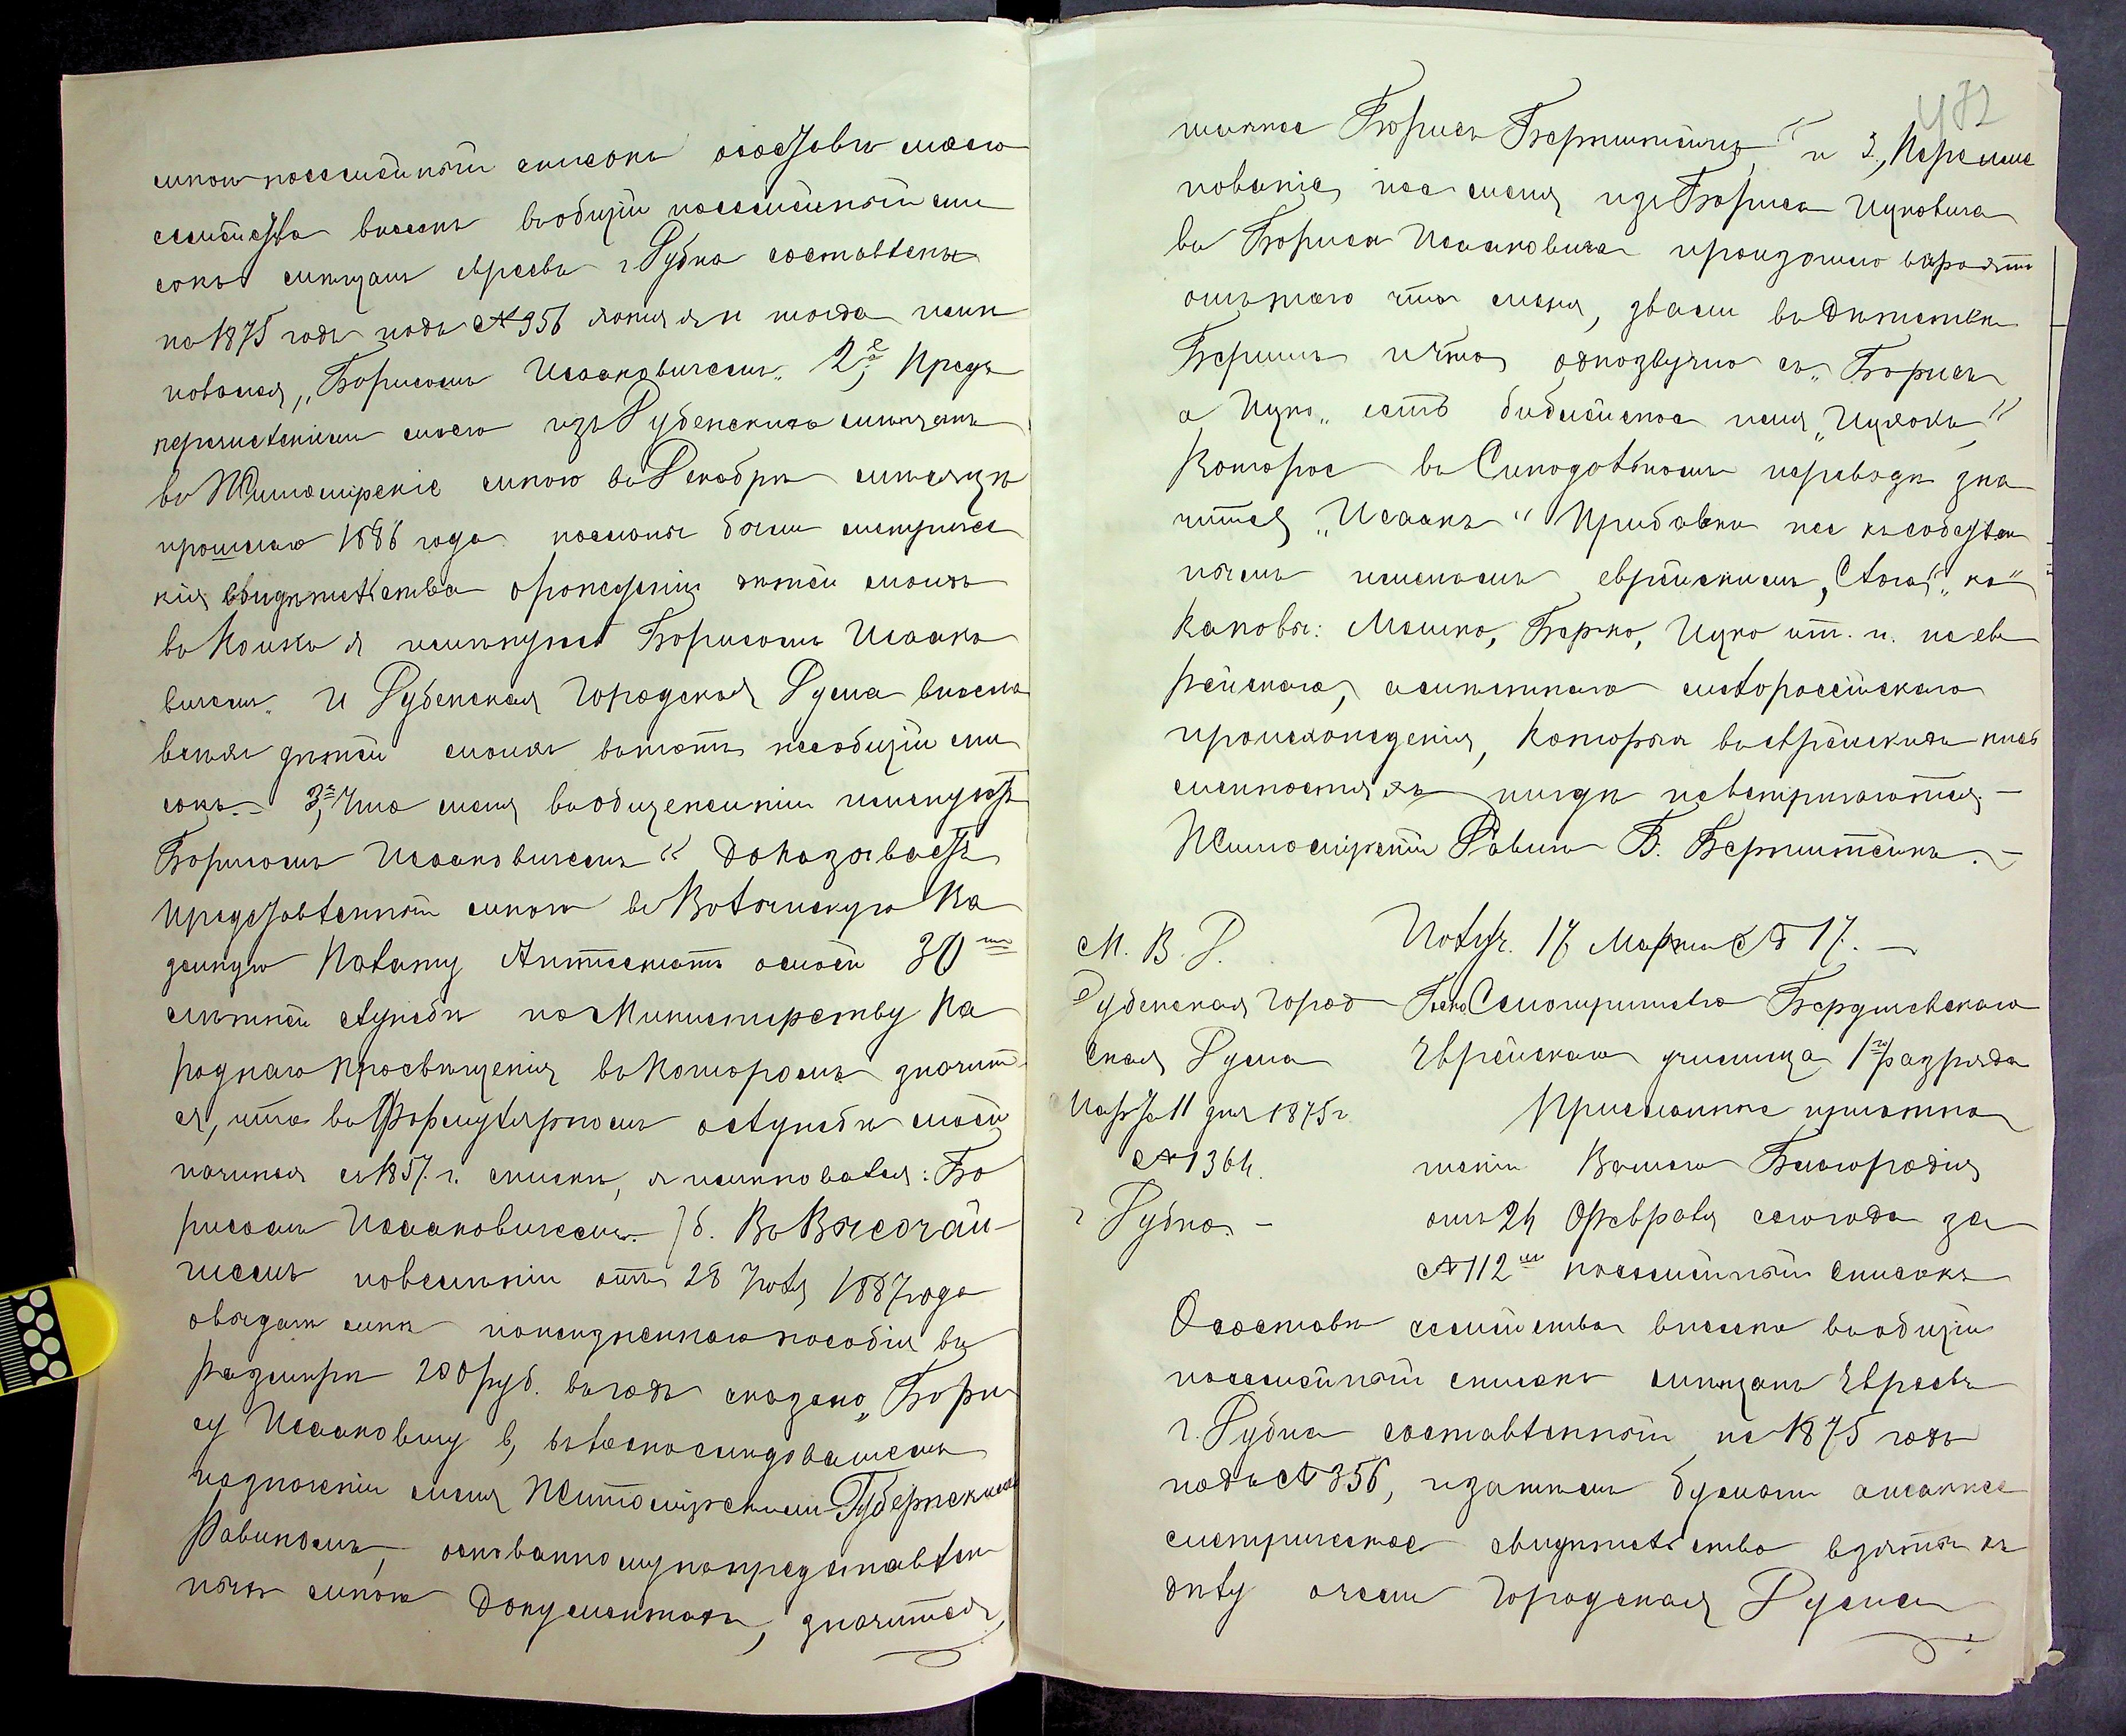 мною посемейный список о составѣ моего
семейства внесенъ въ общій посемейный спи
сокъ мѣщанъ евреевъ г. Дубна составленъ
на 1875 годъ подъ № 356 я и тогда имен
новался, "Борисомъ Исааковичемъ" 2е, Предъ
перечисленіемъ моего изъ Дубенскихъ мѣщанъ
въ Житомірскіе мною въ Декабрѣ мѣсяцѣ
прошлаго 1886 года посланы были метричес
кія свидѣтельства о рожденіи дѣтей моихъ
въ коихъ я именуюсь Борисомъ Исаако
вичемъ" и Дубенская Городская Дума внесла
дѣтей моихъ въ тотъ же общій спи
сокъ. – 3е, Что меня въ общежитіи именуютъ
Борисомъ Исааковичемъ" доказываетъ
представленный мною въ Волынскую Ка
зенную Палату Аттестатъ о моей 30ти
лѣтней службѣ по Министерству На
роднаго Просвѣщенія въ которомъ значит
ся, что въ Формулярномъ о службѣ моей
начиная съ 1857. г. спискѣ, я именовался: Бо
рисомъ Исааковичемъ. б. Въ Высочай-
шемъ повелѣніи отъ 28 Іюля 1887 года
о выдачѣ мнѣ пожизненнаго пособія въ
размѣрѣ 200 руб. въ годъ сказано "Бори
су Исааковичу в, въ
меня Житомірскимъ Губернскимъ
Равиномъ, основанному на представлен
ныхъ мною документахъ, значится,
482
также Борисъ Бернштейнъ" и 3, Переиме
нованіе меня изъ Бориса Ицковича
въ Бориса Исааковича произошло вѣроятно
отъ того что меня, звали въ дѣтствѣ
Беришъ и что однозвучно съ "Борисъ
а Ицко" есть библейское имя "Ицхокъ"
которое въ Синодальномъ переводѣ зна
чится "Исаакъ" Прибавка же къ собствен
нымъ именамъ еврейскимъ, Слога "ко"
каковы: Мошко, Берко, Ицко и т. п. не ев
рейскаго, а мѣстнаго малороссійскаго
происхожденія, которыя въ еврейскихъ пись
менностяхъ нигдѣ не встрѣчаются. –
Житомірскій Равинъ Б. Бернштейнъ. –
М. В. Д.
Дубенская Город
ская Дума
Марта 11 дня 1875 г
№ 1364.
г Дубно. –
Получ. 17 Марта № 17. –
Смотрителю Бердичевскаго
Еврейскаго училища 1го разряда
Присланный при отно
шеніи Вашего Благородія
отъ 24 Февраля сего года за
№ 112мъ посемейный списокъ
О составѣ семейства внесенъ въ общій
посемейный списокъ мѣщанъ Евреевъ
г. Дубна составленный на 1875 годъ
подъ № 356, и за тѣмъ бумаги а также
метрическое свидѣтельство взяты къ
дѣлу о чемъ Городская Дума